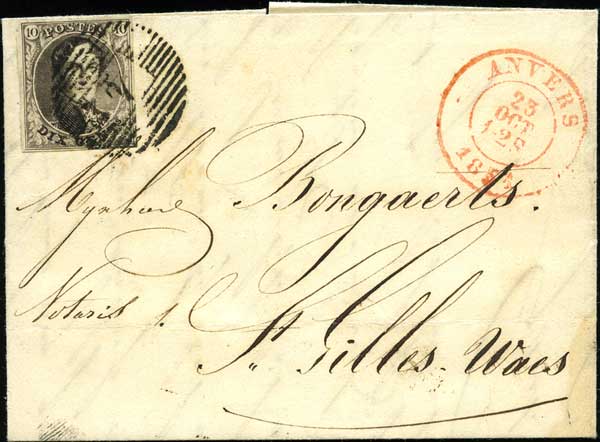 10 POSTES 10
DIX
ANVERS
23
OCT
Mynheer Bongaerts.
Notaris
St. Gilles-Waes